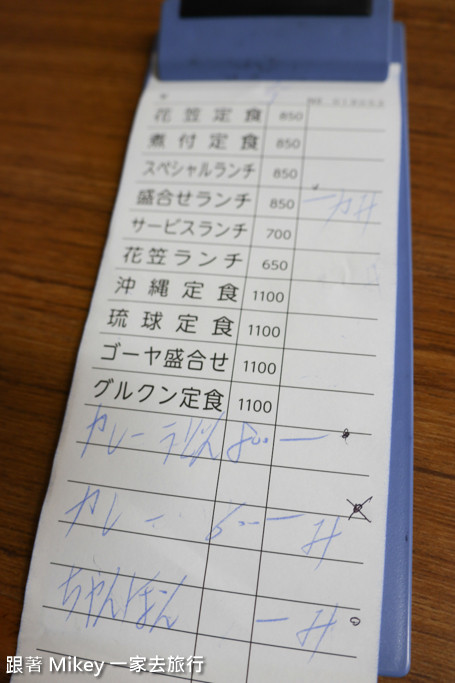 花笠定食 850
煮付定食 850
スペシャルランチ 850
盛合せランチ 850 一
サービスランチ 700
花笠ランチ 650
沖縄定食 1100
琉球定食 1100
ゴーヤ盛合せ 1100
グルクン定食 1100
カレー 一
カレー 一 み
ちゃんぽん 一 み
跟著 Mikey 一家去旅行